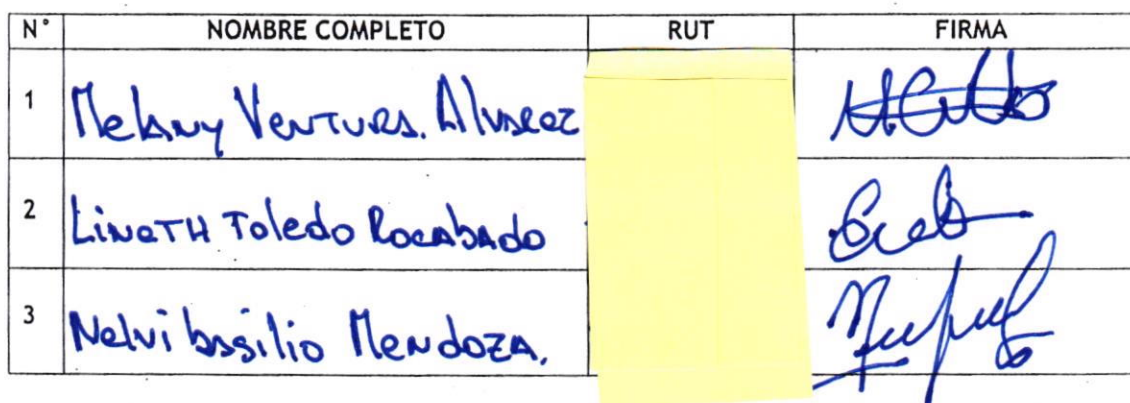 N° NOMBRE COMPLETO RUT FIRMA
1 Melany Ventura. Alvarez
2 Lineth Toledo Rocabado
3 Nelvi basilio Mendoza.